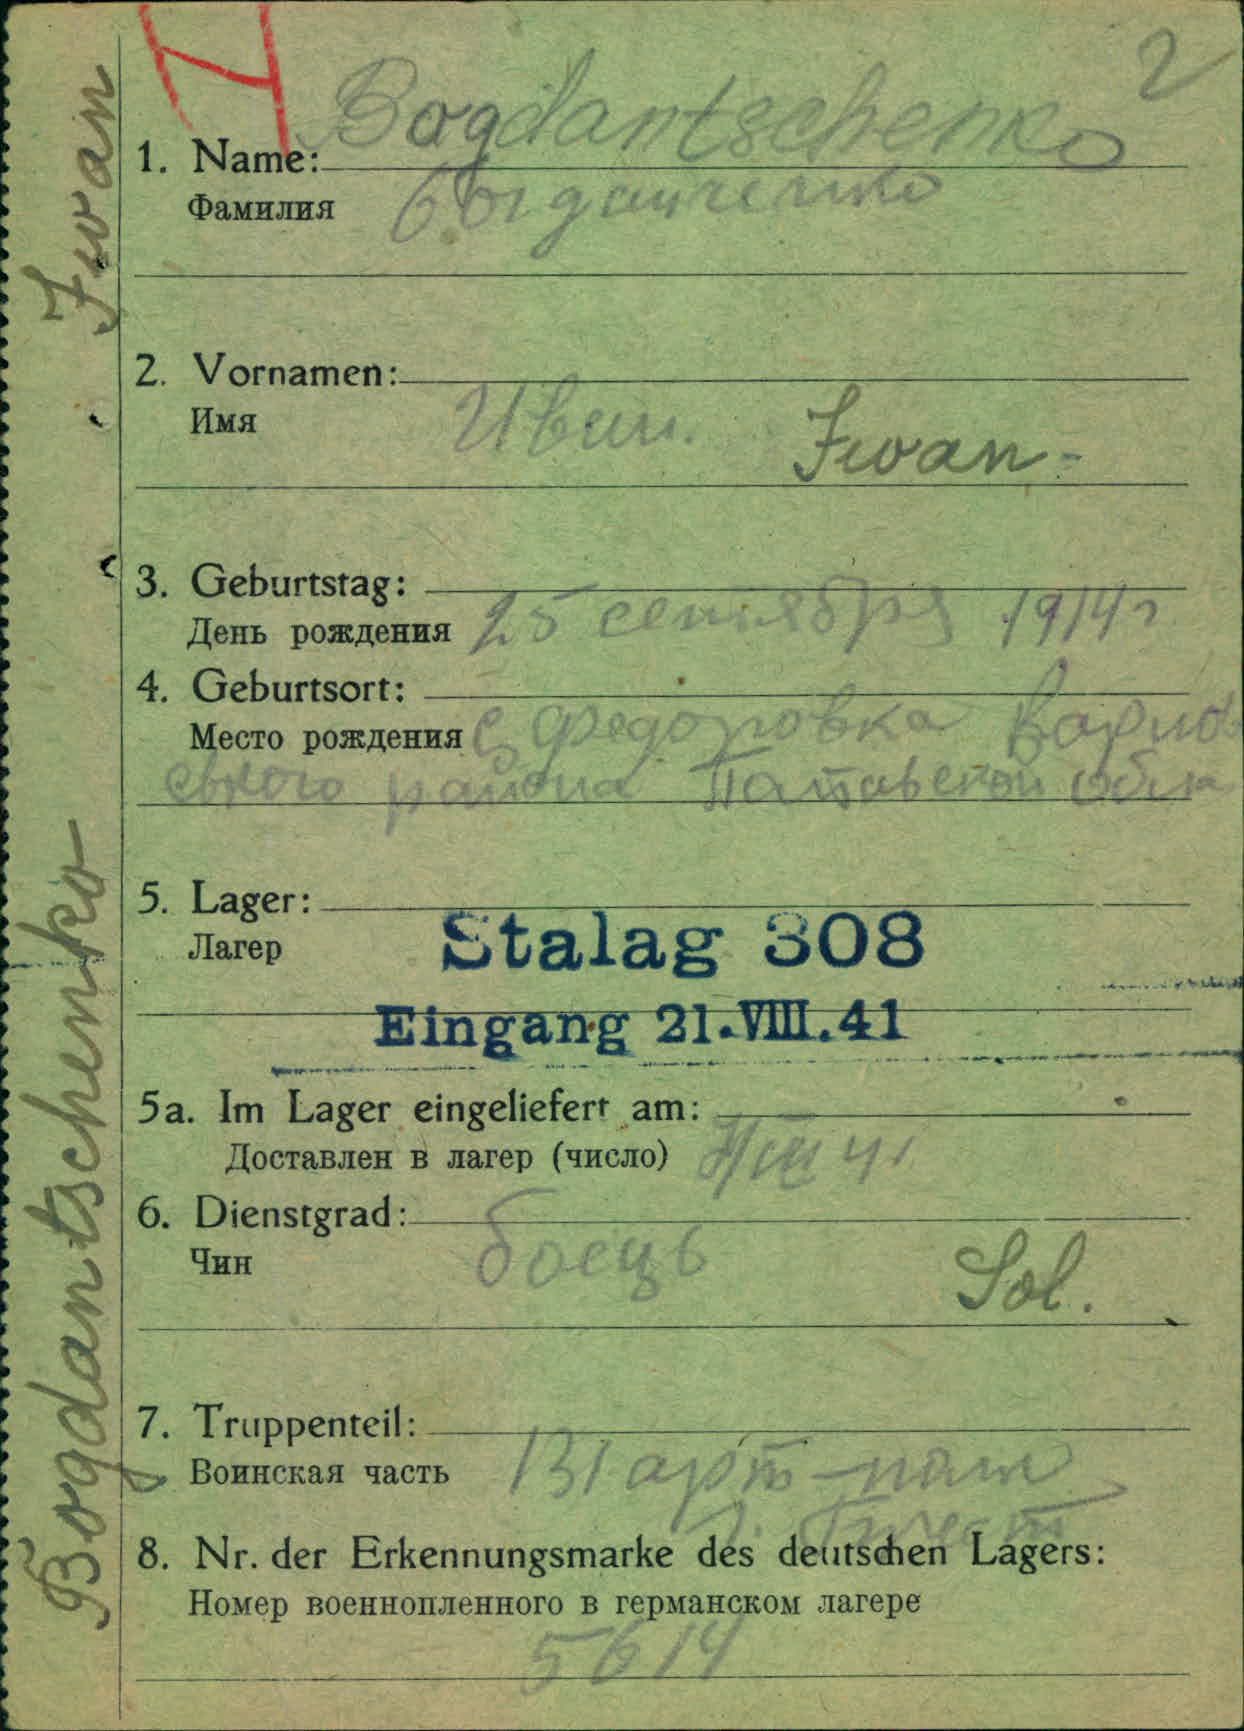 2
Bogdantschenko
1. Name:
Фамилия Богданченко
2. Vornamen:
Имя Иван. Iwan -
3. Geburtstag:
День рождения 25 сентября 1914 г
4. Geburtsort:
Место рождения с Федоровка
ского района обл
5. Lager:
Лагер Stalag 308
Eingang 21.VIII.41
5a. Im Lager eingeliefert am:
Доставлен в лагер (число)
6. Dienstgrad:
Чин боець Sol.
7. Truppenteil:
Воинская часть 131 арт-полк
8. Nr. der Erkennungsmarke des deutschen Lagers:
Номер военнопленного в германском лагере
5614
Bogdantschenko Iwan